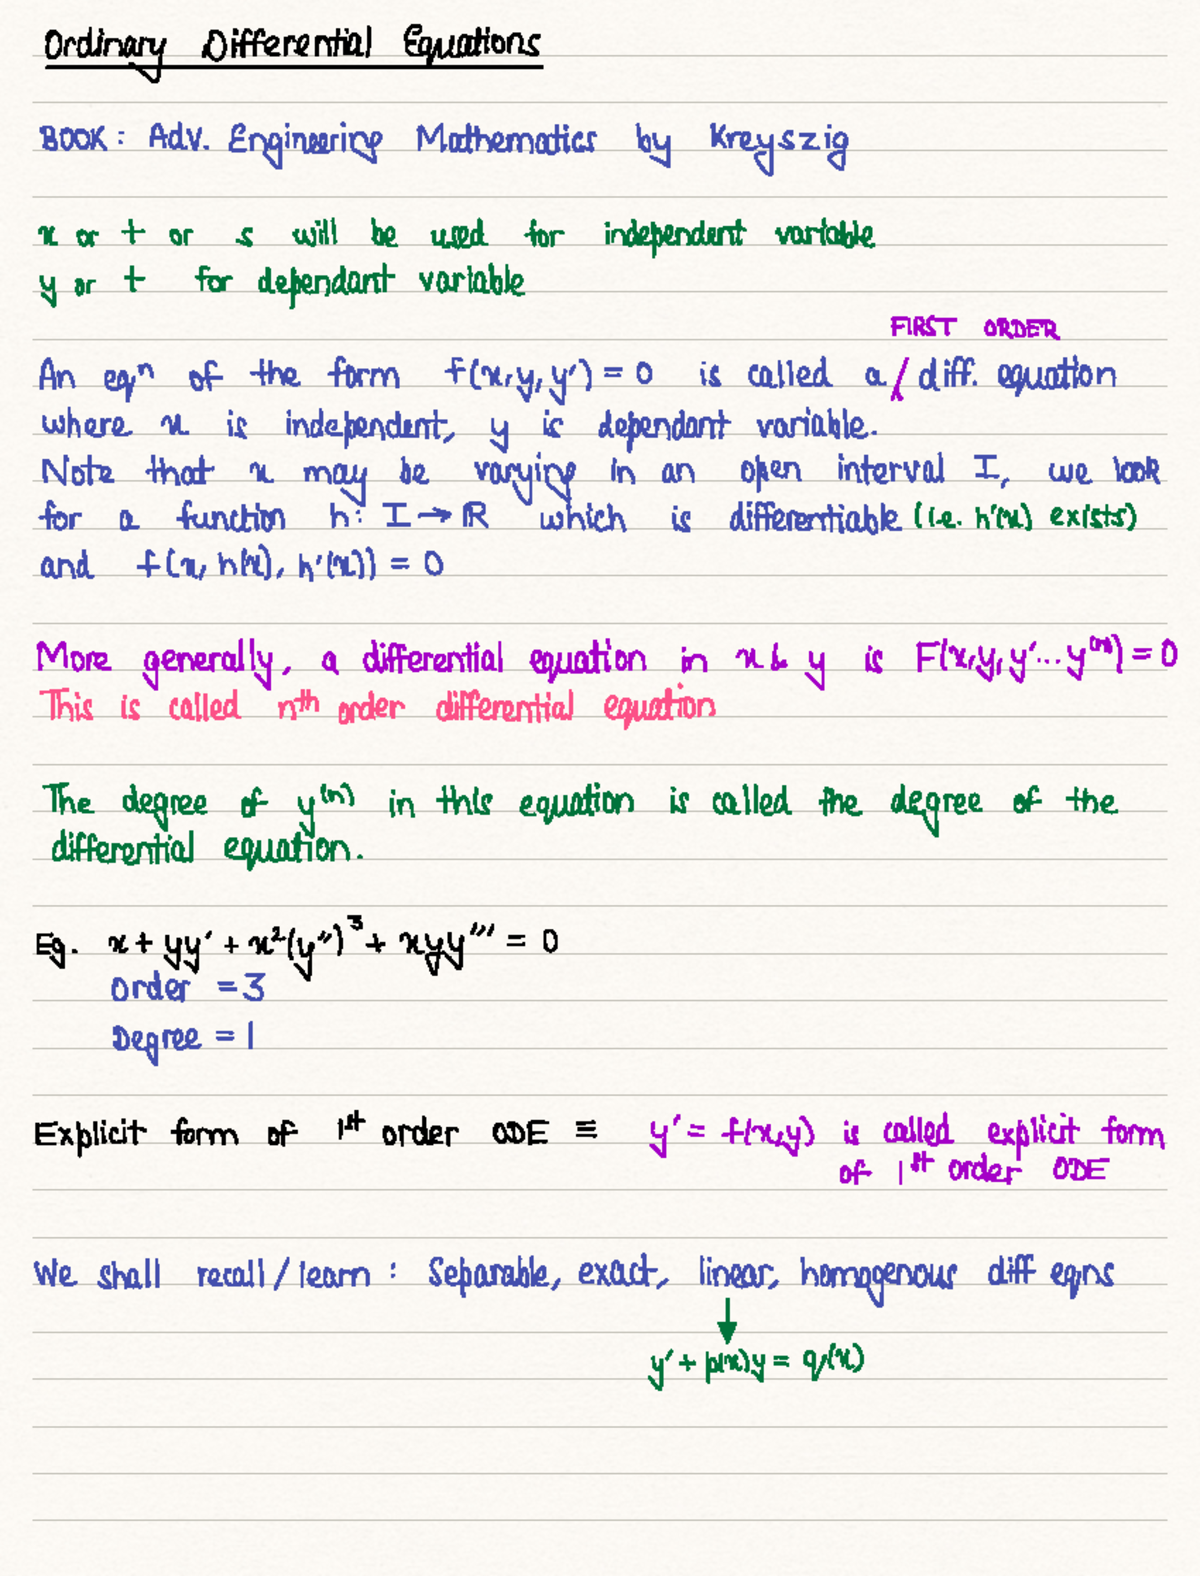 Ordinary Differential Equations
BOOK: Adv. Engineering Mathematics by Kreyszig
x or t or s will be used for independent variable
y or t for dependant variable
FIRST ORDER
An eqⁿ of the form f(x,y,y') = 0 is called a / diff. equation
where x is independent, y is dependant variable.
Note that x may be varying in an open interval I, we look
for a function h: I → ℝ which is differentiable (i.e. h'(x) exists)
and f(x, h(x), h'(x)) = 0
More generally, a differential equation in x & y is F(x,y,y'...y⁽ⁿ⁾) = 0
This is called nth order differential equation
The degree of y⁽ⁿ⁾ in this equation is called the degree of the
differential equation.
Eg. x + yy' + x²(y'')³ + xyy''' = 0
Order = 3
Degree = 1
Explicit form of 1st order ODE ≡ y' = f(x,y) is called explicit form
of 1st order ODE
We shall recall/learn : Separable, exact, linear, homogenous diff eqns
↓
y' + p(x)y = q(x)